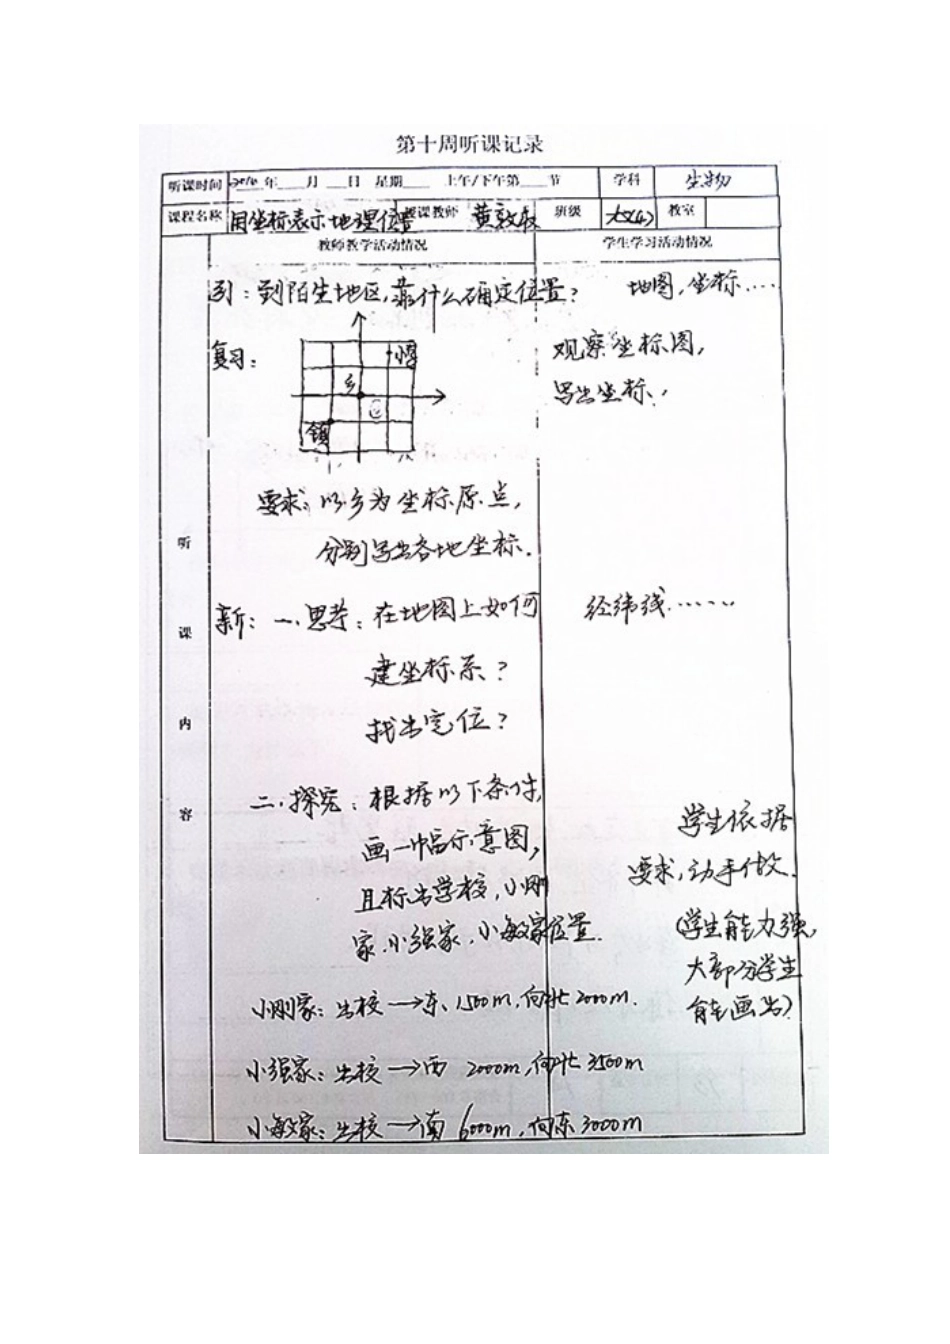 第十周听课记录
听课时间 2010年 月 日 星期 上午/下午第 节 学科 生物
课程名称 用坐标表示地理位置 授课教师 黄 班级 教室
教师教学活动情况 学生学习活动情况
引：到陌生地区，靠什么确定位置？ 地图，坐标……
复习： 观察坐标图，
写出坐标.
乡
镇
要求：以乡为坐标原点，
分别写出各地坐标.
听课内容
新：一.思考：在地图上如何 经纬线……
建坐标系？
找出定位？
二.探究：根据以下条件， 学生依据
画一幅示意图， 要求，动手做.
且标出学校，小刚
家.小强家.小敏家位置. （学生能力强，
大部分学生
能画出）
小刚家：出校→东、1500m，向北2000m.
小强家：出校→西 2000m，向北3500m
小敏家：出校→南 6000m，向东3000m